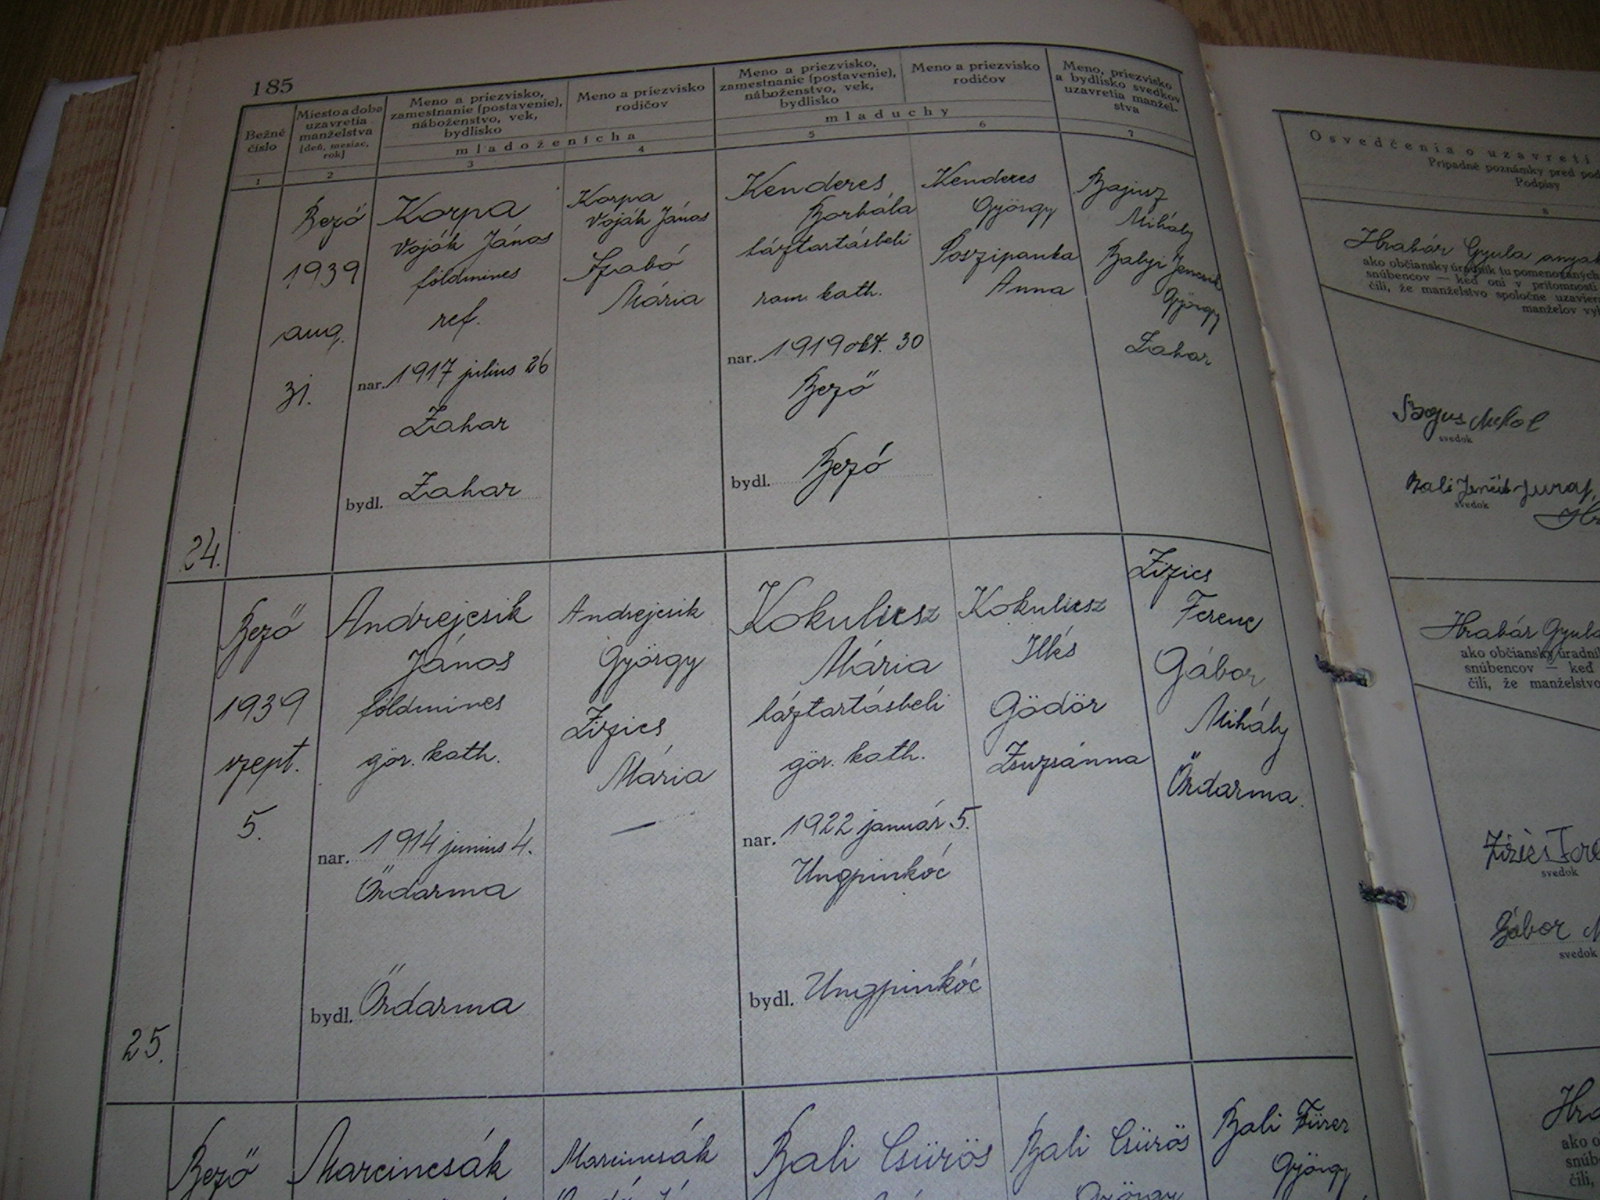 185
Bežné číslo
Miesto a doba uzavretia manželstva [deň, mesiac, rok]
Meno a priezvisko, zamestnanie (postavenie), náboženstvo, vek, bydlisko
Meno a priezvisko rodičov
mladoženícha
Meno a priezvisko, zamestnanie (postavenie), náboženstvo, vek, bydlisko
Meno a priezvisko rodičov
mladuchy
Meno, priezvisko a bydlisko svedkov uzavretia manžel-stva
1 2 3 4 5 6 7
24.
Bező
1939
aug.
31.
Korpa
Voják János
földmíves
ref.
nar. 1917 július 26
Záhar
bydl. Záhar
Korpa
Voják János
Szabó
Mária
Kenderes
Borbála
háztartásbeli
rom. kath.
nar. 1919 okt. 30
Bező
bydl. Bező
Kenderes
György
Poszipanka
Anna
Mihály
György
Záhar
25.
Bező
1939
szept.
5.
Andrejcsik
János
földmíves
gör. kath.
nar. 1914 junius 4.
Őrdarma
bydl. Őrdarma
Andrejcsik
György
Zizics
Mária
Kokulicsz
Mária
háztartásbeli
gör. kath.
nar. 1922 január 5.
Ungpinkóc
bydl. Ungpinkóc
Kokulicsz
Illés
Gödör
Zsuzsánna
Zizics
Ferenc
Gábor
Mihály
Őrdarma.
Bező
Marcincsák
Marcincsák
Bali Csürös
Bali Csürös
György
Bali Fürer
György
Osvedčenia o uzavretí
Prípadné poznámky pred pod
Podpisy
8
Hrabár Gyula anyak
ako občiansky úradník tu pomenovaných
snúbencov — keď oni v prítomnosti
čili, že manželstvo spoločne uzavier
manželov vyh
svedok
svedok
Hrabár Gyula
ako občiansky úradní
snúbencov — keď
čili, že manželstvo
Zizics Fere
svedok
Gábor M
svedok
Hra
ako o
snúb
čili,